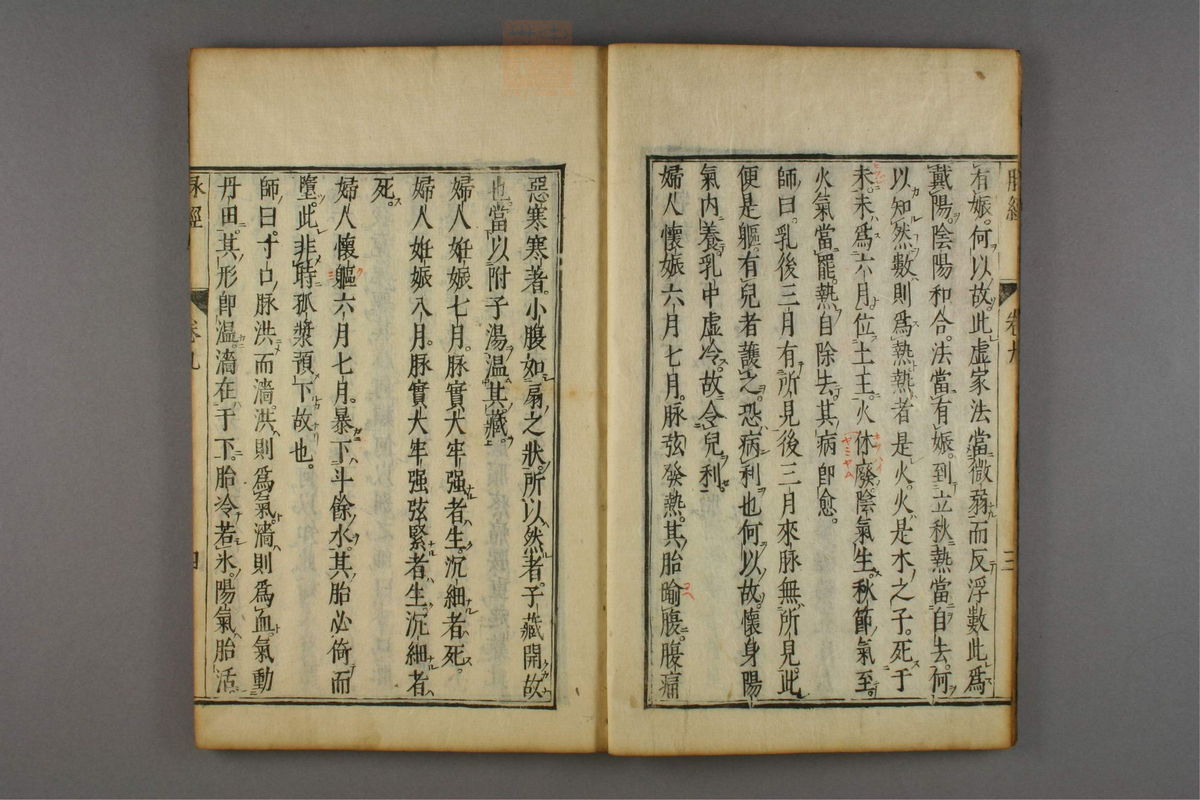 脉經
卷九
三
有娠。何以故。此虚家法當微弱而反浮數此爲
戴陽。陰陽和合。法當有娠。到立秋熱當自去。何
以知然數則爲熱熱者是火。火是木之子。死于
未。未爲六月位土王。火休廢陰氣生。秋節氣至。
火氣當罷。熱自除去。其病卽愈。
師曰。乳後三月有所見後三月來脉無所見。此
便是軀。有兒者護之。恐病利也何以故。懷身陽
氣内養乳中虚冷。故令兒利。
婦人懷娠六月七月。脉弦發熱。其胎踰腹。腹痛
惡寒寒著。小腹如扇之狀。所以然者。子藏開故
也。當以附子湯温其藏。
婦人妊娠七月。脉實大牢强者生。沉細者死。
婦人妊娠八月。脉實大牢强弦緊者生。沉細者
死。
婦人懷軀六月七月。暴下斗餘水。其胎必倚而
墮。此非時孤漿預下故也。
師曰。寸口脉洪而濇。洪則爲氣。濇則爲血。氣動
丹田。其形卽温。濇在于下。胎冷若氷。陽氣胎活
脉經
卷九
四